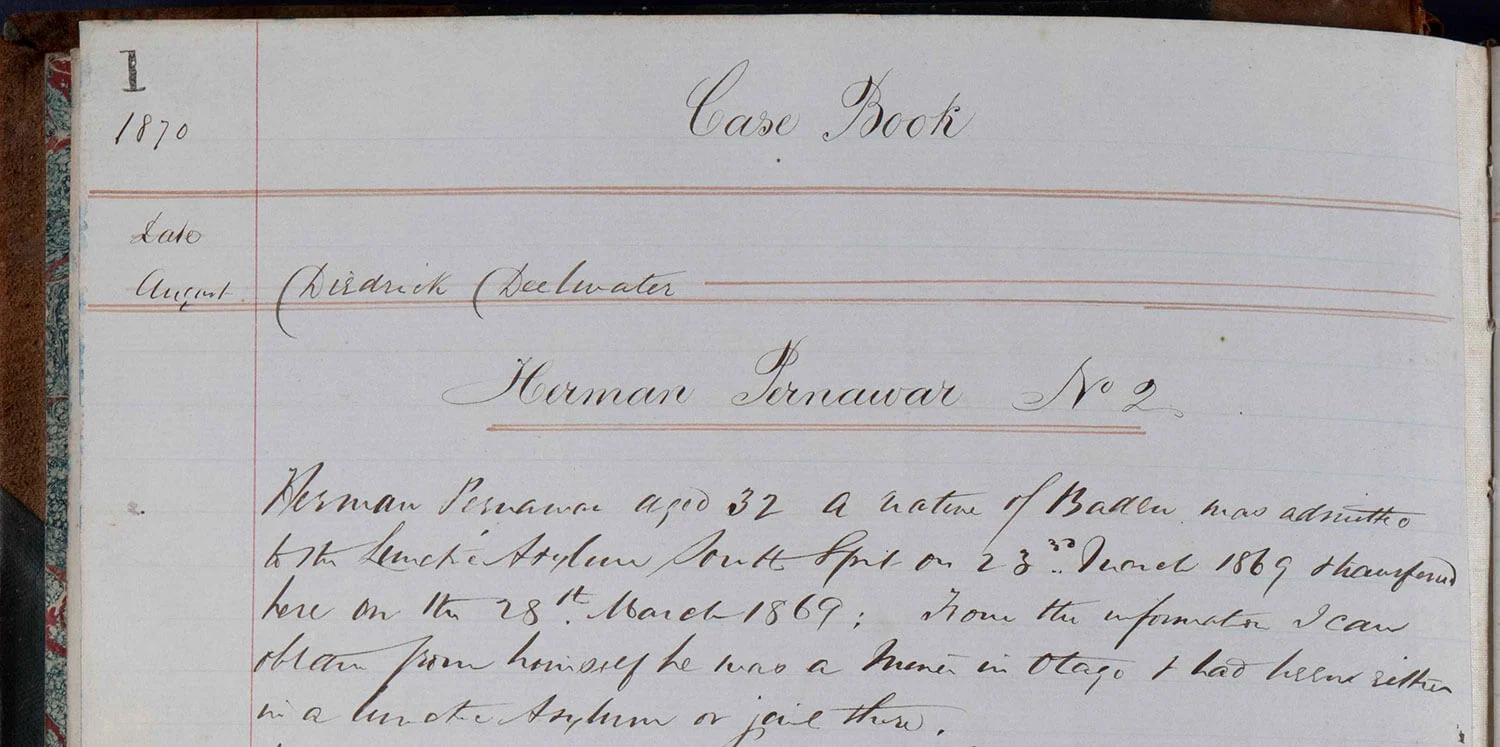 1
1870
Case Book
Date
August
Diedrick Deelwater
Herman Pernawar No 2
Herman Pernawar aged 32 a native of Baden was admitted
to the Lunatic Asylum South Spit on 23rd March 1869 & transferred
here on the 28th March 1869; From the information I can
obtain from himself he was a Miner in Otago & had been either
in a lunatic Asylum or jail there.